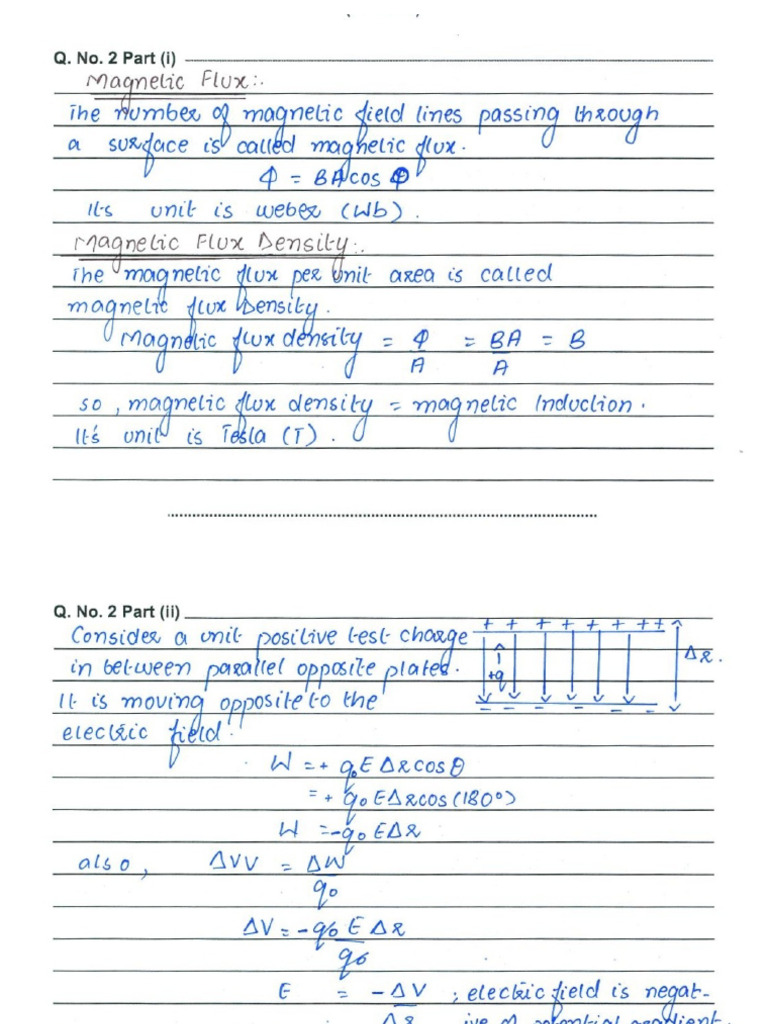 Q. No. 2 Part (i)
Magnetic Flux:.
The number of magnetic field lines passing through
a surface is called magnetic flux.
Φ = BA cos Φ
Its unit is weber (Wb).
Magnetic Flux Density:.
The magnetic flux per unit area is called
magnetic flux Density.
Magnetic flux density = Φ/A = BA/A = B
so, magnetic flux density = magnetic Induction.
It's unit is Tesla (T).
Q. No. 2 Part (ii)
Consider a unit positive test charge
in between parallel opposite plates.
It is moving opposite to the
electric field.
+ + + + + + ++
+q
Δr.
- - - - - -
W = + q₀EΔr cos θ
= + q₀EΔr cos (180°)
W = -q₀EΔr
also, ΔVV = ΔW/q₀
ΔV = -q₀EΔr/q₀
E = -ΔV/Δr ; electric field is negat-
ive of potential gradient.